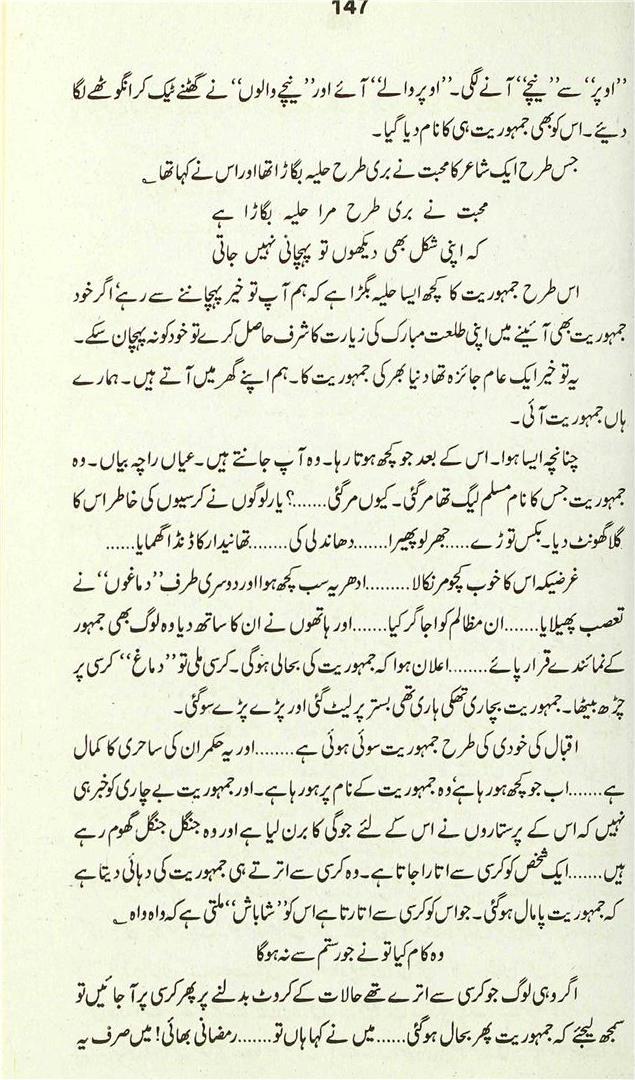 147
”اوپر“ سے ”نیچے“ آنے لگی۔ ”اوپر والے“ آئے اور ”نیچے والوں“ نے گھٹنے ٹیک کر انگوٹھے لگا
دیئے۔ اس کو بھی جمہوریت ہی کا نام دیا گیا۔
جس طرح ایک شاعر کا محبت نے بری طرح حلیہ بگاڑا تھا اور اس نے کہا تھا ؎
محبت نے بری طرح مرا حلیہ بگاڑا ہے
کہ اپنی شکل بھی دیکھوں تو پہچانی نہیں جاتی
اس طرح جمہوریت کا کچھ ایسا حلیہ بگڑا ہے کہ ہم آپ تو خیر پہچاننے سے رہے’ اگر خود
جمہوریت بھی آئینے میں اپنی طلعت مبارک کی زیارت کا شرف حاصل کرے تو خود کو نہ پہچان سکے۔
یہ تو خیر ایک عام جائزہ تھا دنیا بھر کی جمہوریت کا۔ ہم اپنے گھر میں آتے ہیں۔ ہمارے
ہاں جمہوریت آئی۔
چنانچہ ایسا ہوا۔ اس کے بعد جو کچھ ہوتا رہا۔ وہ آپ جانتے ہیں۔ عیاں راچہ بیاں۔ وہ
جمہوریت جس کا نام مسلم لیگ تھا مر گئی۔ کیوں مر گئی.......؟ یار لوگوں نے کرسیوں کی خاطر اس کا
گلا گھونٹ دیا۔ بکس توڑے.....جھرلو پھیرا.......دھاندلی کی........تھانیدار کا ڈنڈا گھمایا......
غرضیکہ اس کا خوب کچومر نکالا.........ادھر یہ سب کچھ ہوا اور دوسری طرف ”دماغوں“ نے
تعصب پھیلایا.......ان مظالم کو اجاگر کیا.......اور ہاتھوں نے ان کا ساتھ دیا وہ لوگ بھی جمہور
کے نمائندے قرار پائے........اعلان ہوا کہ جمہوریت کی بحالی ہوگی۔ کرسی ملی تو ”دماغ“ کرسی پر
چڑھ بیٹھا۔ جمہوریت بچاری تھکی ہاری تھی بستر پر لیٹ گئی اور پڑے پڑے سو گئی۔
اقبال کی خودی کی طرح جمہوریت سوئی ہوئی ہے........اور یہ حکمران کی ساحری کا کمال
ہے.......اب جو کچھ ہو رہا ہے’ وہ جمہوریت کے نام پر ہو رہا ہے۔ اور جمہوریت بے چاری کو خبر ہی
نہیں کہ اس کے پرستاروں نے اس کے لئے جوگی کا برن لیا ہے اور وہ جنگل جنگل گھوم رہے
ہیں.......ایک شخص کو کرسی سے اتارا جاتا ہے۔ وہ کرسی سے اترتے ہی جمہوریت کی دہائی دیتا ہے
کہ جمہوریت پامال ہوگئی۔ جو اس کو کرسی سے اتارتا ہے اس کو ”شاباش“ ملتی ہے کہ واہ واہ ؎
وہ کام کیا تو نے جو رستم سے نہ ہوگا
اگر وہی لوگ جو کرسی سے اترے تھے حالات کے کروٹ بدلنے پر پھر کرسی پر آ جائیں تو
سمجھ لیجئے کہ جمہوریت پھر بحال ہوگئی......میں نے کہا ہاں تو.......رمضانی بھائی! میں صرف یہ